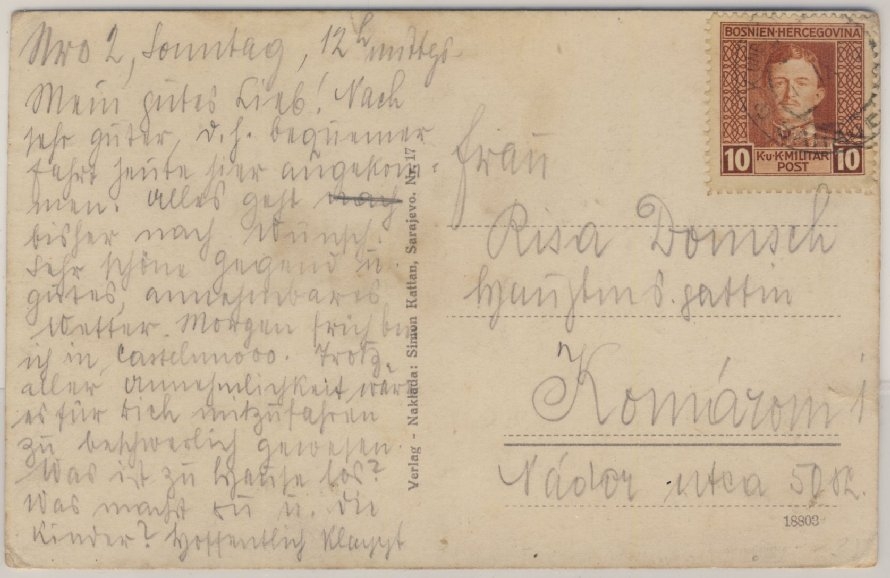 Nro 2, Sonntag, 12h mittgs.
Mein gutes Lieb! Nach
sehr guter, d.h. bequemer
Fahrt heute hier angekom-
men. Alles geht nach
bisher nach Wunsch.
Sehr schöne Gegend u.
gutes, annehmbares
Wetter. Morgen früh bin
ich in Castelnuovo. Trotz
aller Annehmlichkeit wäre
es für Dich mitzufahren
zu beschwerlich gewesen.
Was ist zu Hause los?
Was machst Du u. die
Kinder? Hoffentlich klappt
Verlag - Naklada: Simon Kattan, Sarajevo. Nr. 17
BOSNIEN-HERCEGOVINA
10 K.u.K. MILITÄR POST 10
Frau
Risa Domsch
Hauptms.gattin
Komárom
Nádor utca 50
18803